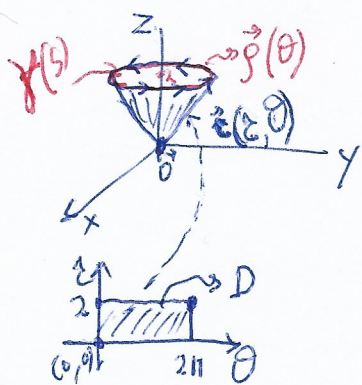 Z
γ(s)
ρ⃗(θ)
r⃗(r, θ)
0⃗
Y
X
r
2
D
(0,0)
2π
θ